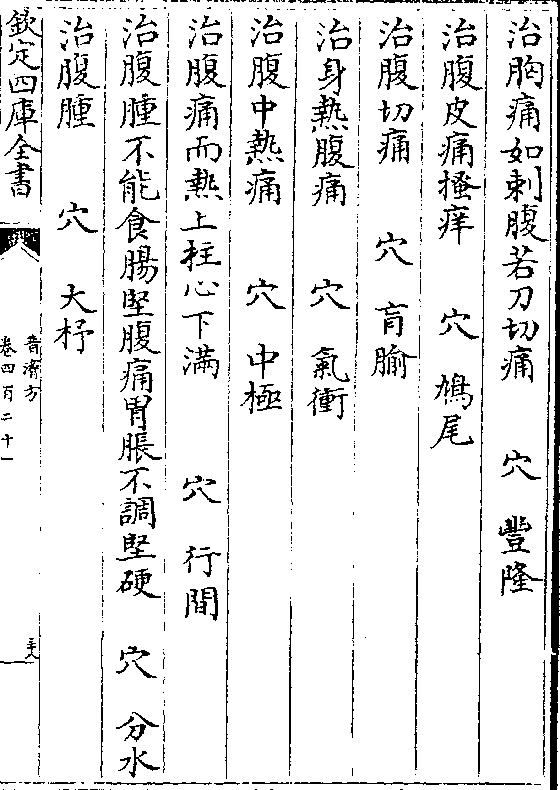 治胸痛如刺腹若刀切痛　穴　豐隆
治腹皮痛搔痒　穴　鳩尾
治腹切痛　穴　肓腧
治身熱腹痛　穴　氣衝
治腹中熱痛　穴　中極
治腹痛而熱上柱心下滿　穴　行間
治腹腫不能食腸堅腹痛胃脹不調堅硬　穴　分水
治腹腫　穴　大杼
欽定四庫全書
普濟方
卷四百二十一